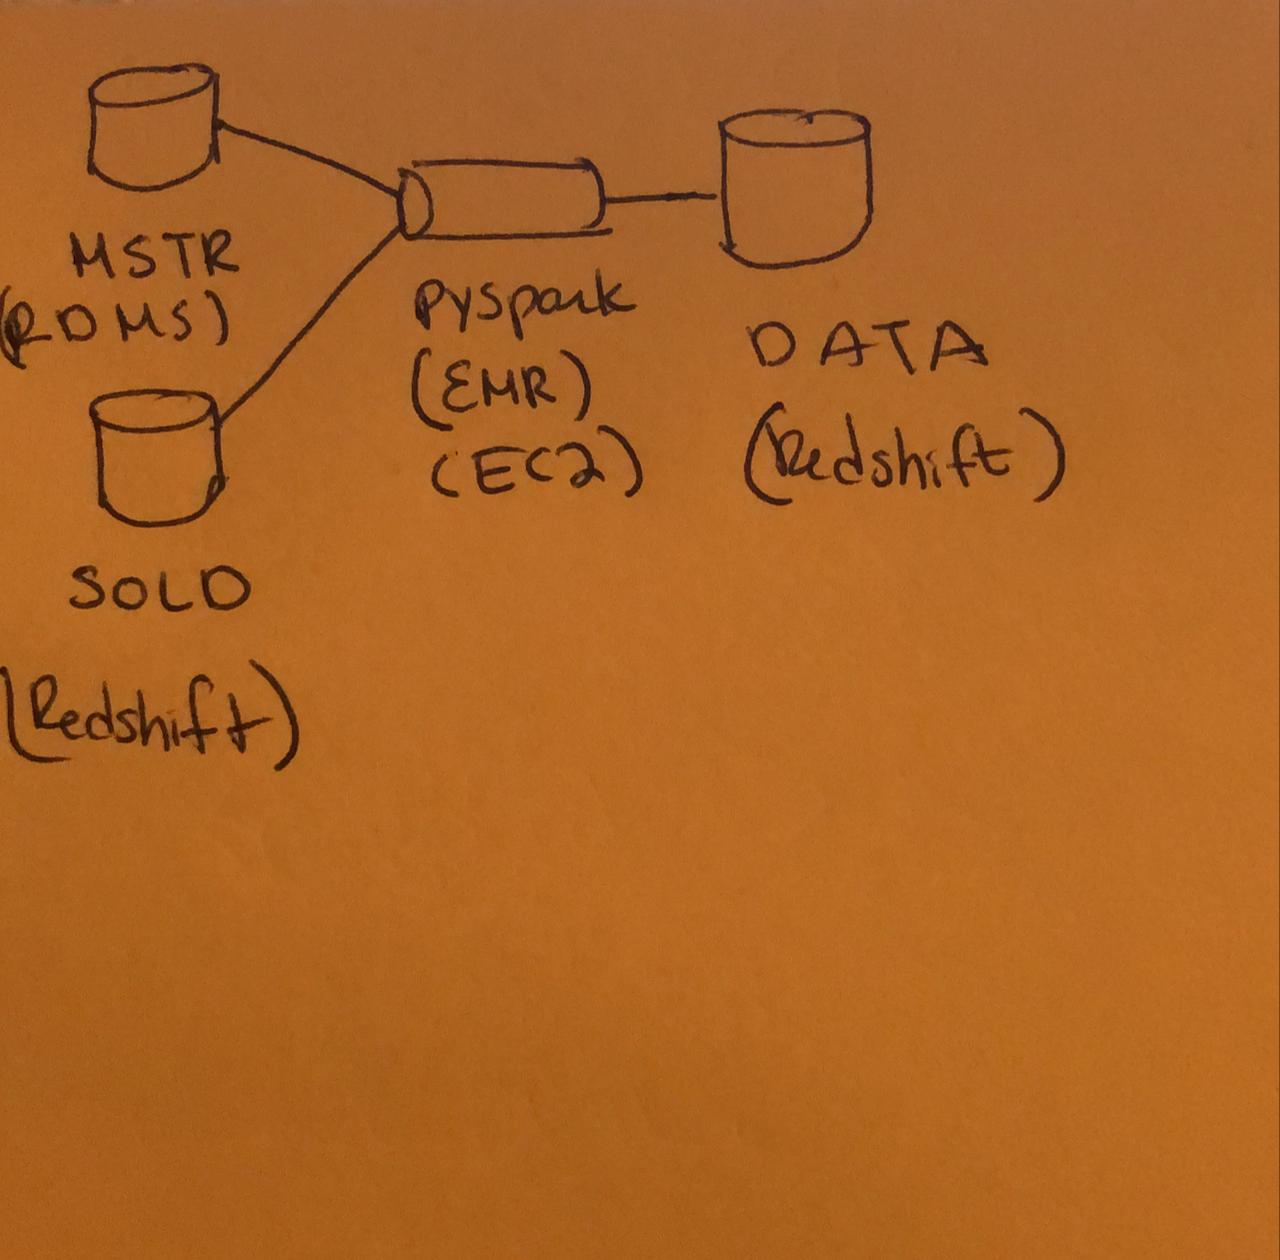 MSTR
(RDMS)
SOLD
(Redshift)
Pyspark
(EMR)
(EC2)
DATA
(Redshift)